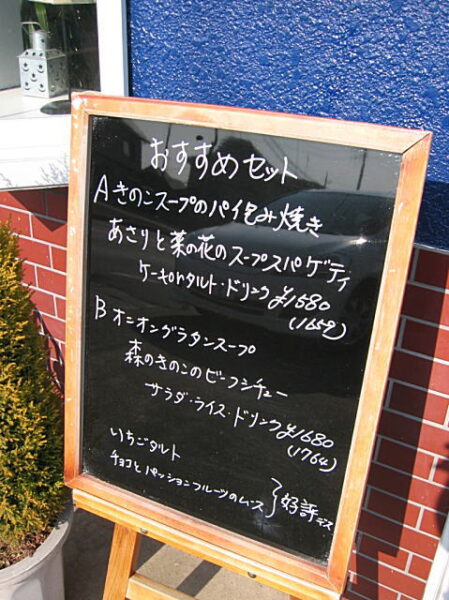 おすすめセット
A きのこスープのパイ包み焼き
あさりと菜の花のスープスパゲティ
ケーキorタルト・ドリンク ¥1580
(1659)
B オニオングラタンスープ
森のきのこのビーフシチュー
サラダ・ライス・ドリンク ¥1680
(1764)
いちごタルト
チョコとパッションフルーツのムース
}好評デス